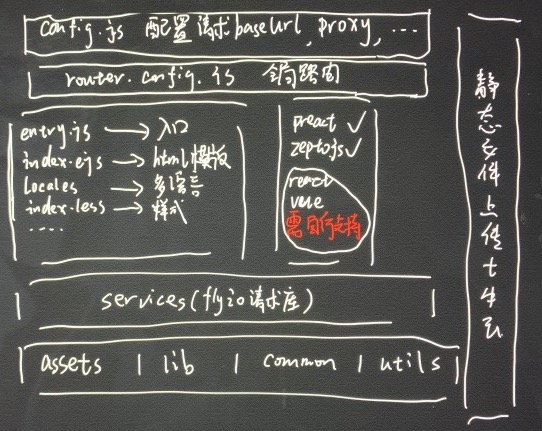 config.js 配置请求baseUrl, proxy, ...
router.config.js 路由
entry.js → 入口
index.ejs → html模版
Locales → 多语言
index.less → 样式
....
preact ✓
zeptojs ✓
react
vue
需自行支持
services(flyio请求库)
assets | lib | common | utils
静态文件上传七牛云